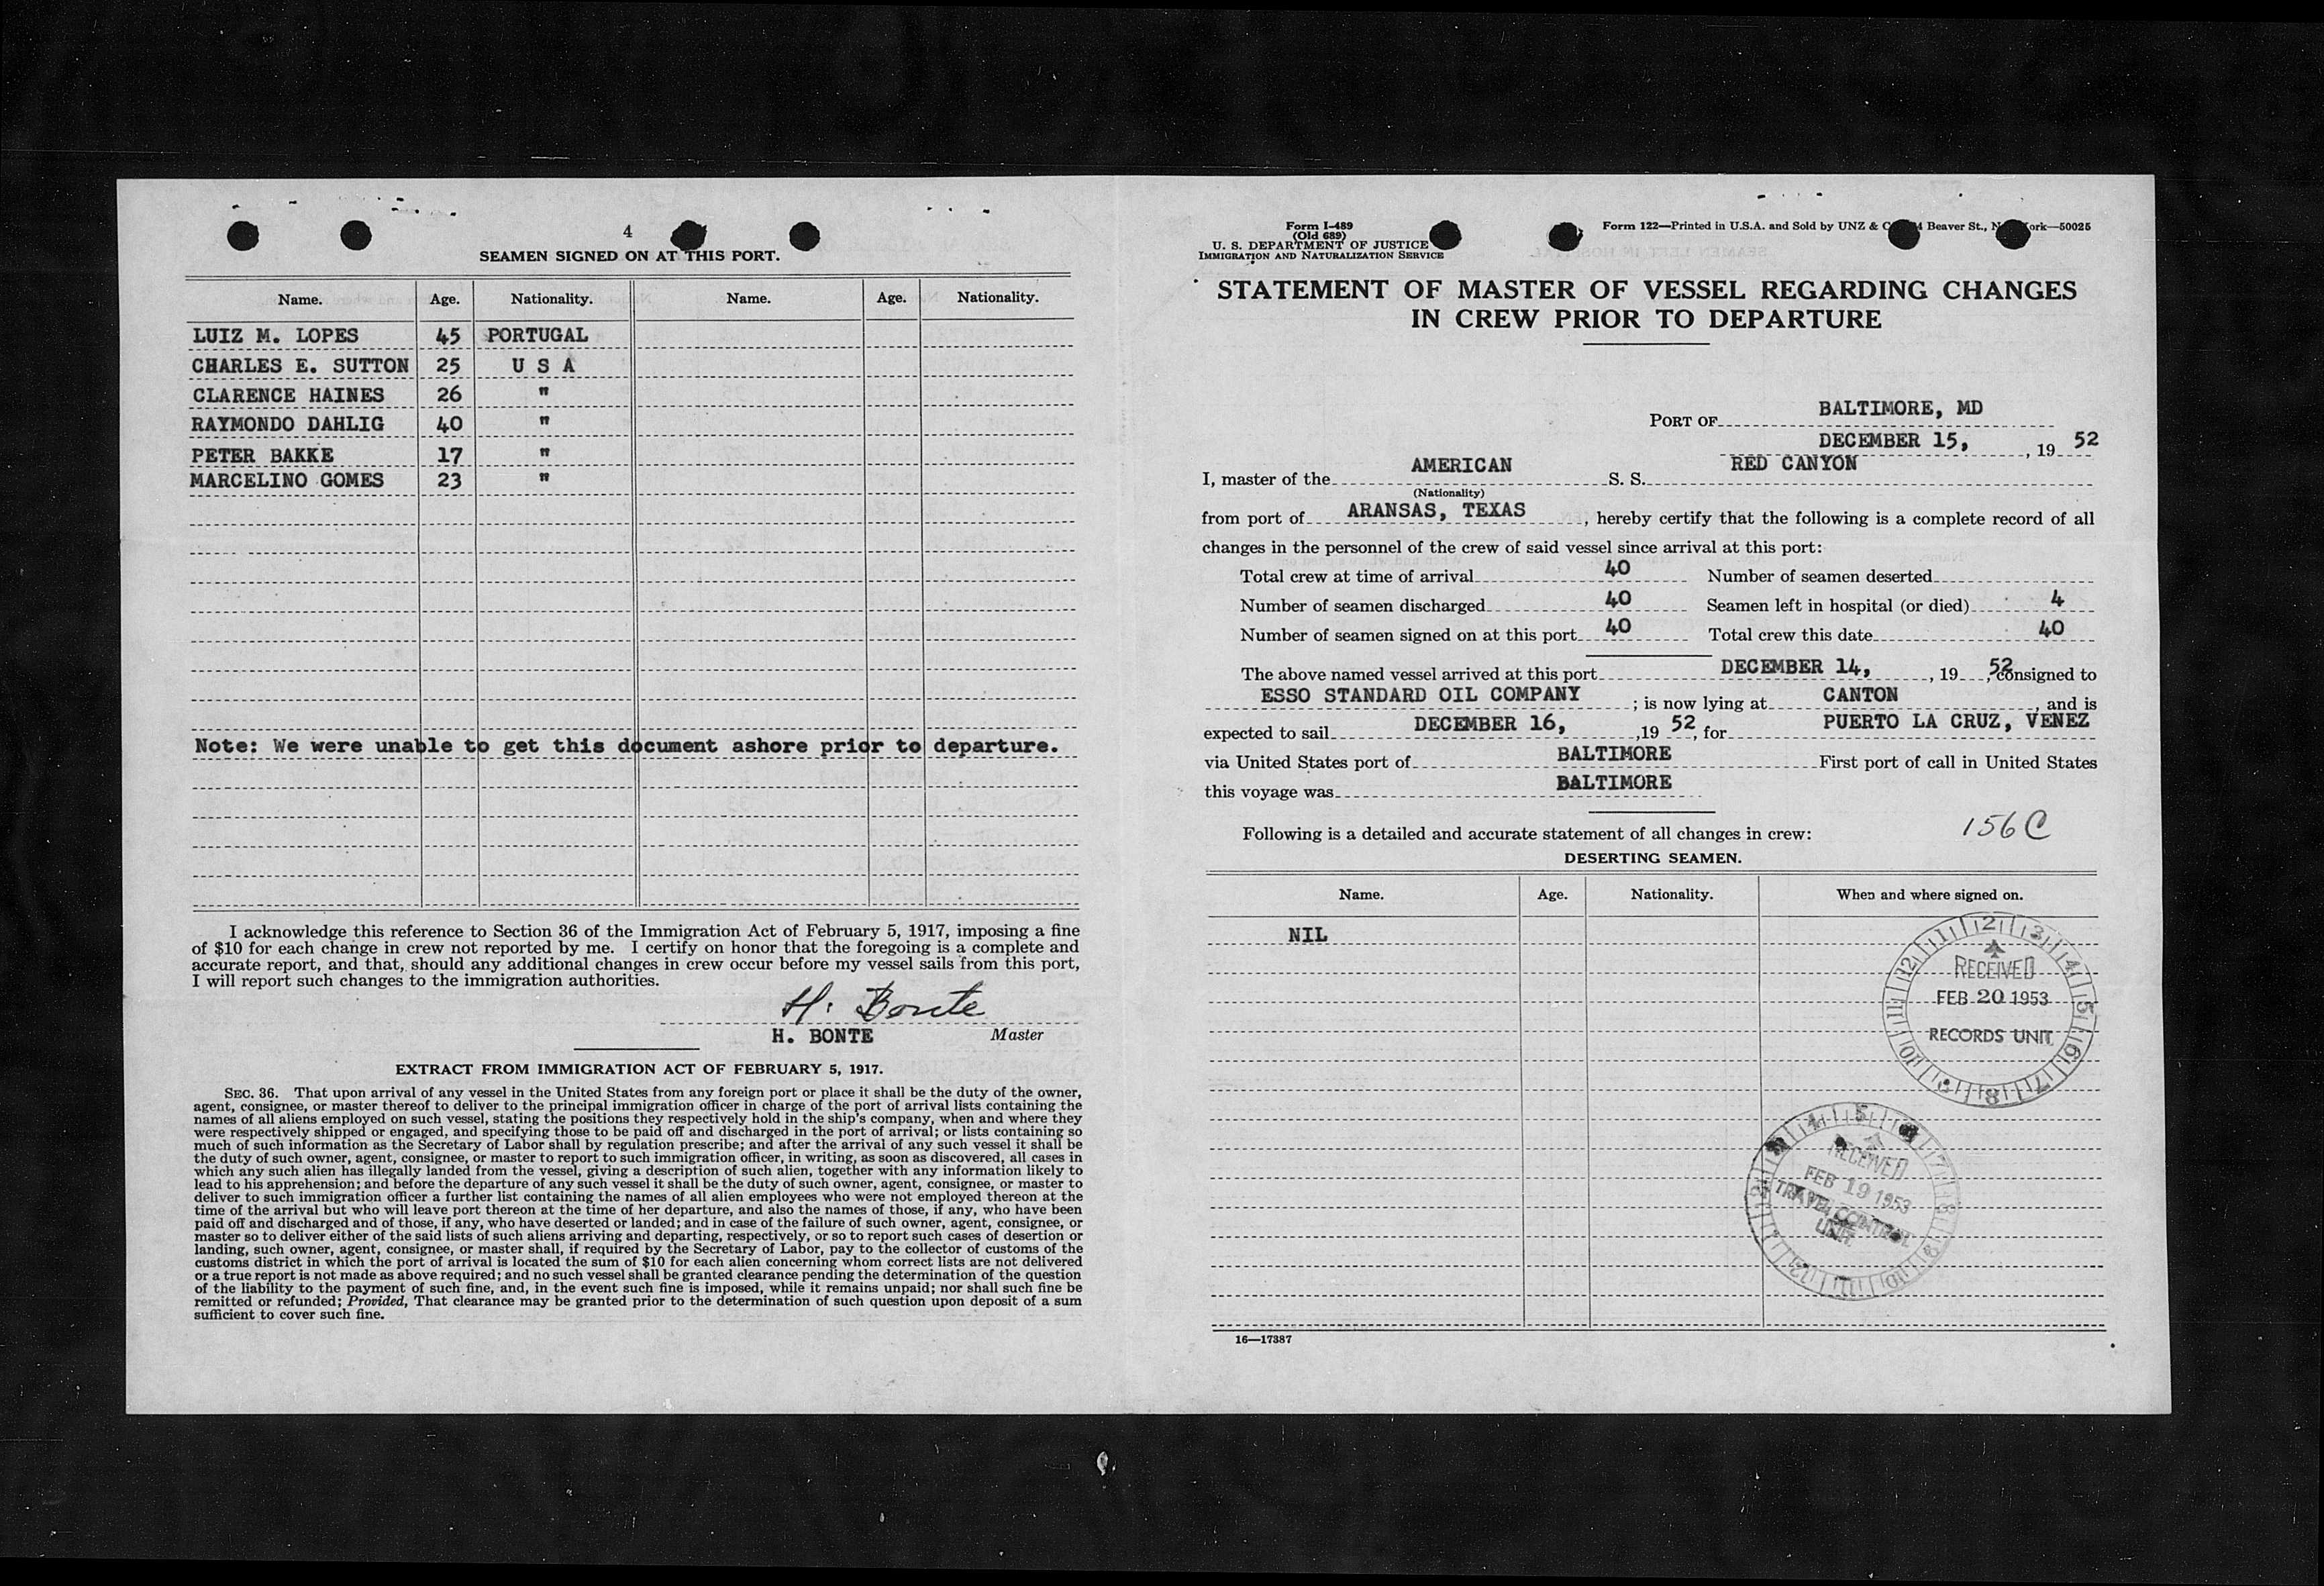 4
SEAMEN SIGNED ON AT THIS PORT.
Name. Age. Nationality. Name. Age. Nationality.
LUIZ M. LOPES 45 PORTUGAL
CHARLES E. SUTTON 25 U S A
CLARENCE HAINES 26 "
RAYMONDO DAHLIG 40 "
PETER BAKKE 17 "
MARCELINO GOMES 23 "
Note: We were unable to get this document ashore prior to departure.
I acknowledge this reference to Section 36 of the Immigration Act of February 5, 1917, imposing a fine
of $10 for each change in crew not reported by me. I certify on honor that the foregoing is a complete and
accurate report, and that, should any additional changes in crew occur before my vessel sails from this port,
I will report such changes to the immigration authorities.
H. Bonte
H. BONTE Master
EXTRACT FROM IMMIGRATION ACT OF FEBRUARY 5, 1917.
SEC. 36. That upon arrival of any vessel in the United States from any foreign port or place it shall be the duty of the owner,
agent, consignee, or master thereof to deliver to the principal immigration officer in charge of the port of arrival lists containing the
names of all aliens employed on such vessel, stating the positions they respectively hold in the ship's company, when and where they
were respectively shipped or engaged, and specifying those to be paid off and discharged in the port of arrival; or lists containing so
much of such information as the Secretary of Labor shall by regulation prescribe; and after the arrival of any such vessel it shall be
the duty of such owner, agent, consignee, or master to report to such immigration officer, in writing, as soon as discovered, all cases in
which any such alien has illegally landed from the vessel, giving a description of such alien, together with any information likely to
lead to his apprehension; and before the departure of any such vessel it shall be the duty of such owner, agent, consignee, or master to
deliver to such immigration officer a further list containing the names of all alien employees who were not employed thereon at the
time of the arrival but who will leave port thereon at the time of her departure, and also the names of those, if any, who have been
paid off and discharged and of those, if any, who have deserted or landed; and in case of the failure of such owner, agent, consignee, or
master so to deliver either of the said lists of such aliens arriving and departing, respectively, or so to report such cases of desertion or
landing, such owner, agent, consignee, or master shall, if required by the Secretary of Labor, pay to the collector of customs of the
customs district in which the port of arrival is located the sum of $10 for each alien concerning whom correct lists are not delivered
or a true report is not made as above required; and no such vessel shall be granted clearance pending the determination of the question
of the liability to the payment of such fine, and, in the event such fine is imposed, while it remains unpaid; nor shall such fine be
remitted or refunded; Provided, That clearance may be granted prior to the determination of such question upon deposit of a sum
sufficient to cover such fine.
Form I-489
(Old 689)
U. S. DEPARTMENT OF JUSTICE
IMMIGRATION AND NATURALIZATION SERVICE
Form 122—Printed in U.S.A. and Sold by UNZ & C Beaver St., N ork—50025
STATEMENT OF MASTER OF VESSEL REGARDING CHANGES
IN CREW PRIOR TO DEPARTURE
PORT OF BALTIMORE, MD
DECEMBER 15, , 19 52
I, master of the AMERICAN S. S. RED CANYON
(Nationality)
from port of ARANSAS, TEXAS , hereby certify that the following is a complete record of all
changes in the personnel of the crew of said vessel since arrival at this port:
Total crew at time of arrival 40 Number of seamen deserted
Number of seamen discharged 40 Seamen left in hospital (or died) 4
Number of seamen signed on at this port 40 Total crew this date 40
The above named vessel arrived at this port DECEMBER 14, , 19 52, consigned to
ESSO STANDARD OIL COMPANY ; is now lying at CANTON , and is
expected to sail DECEMBER 16, ,19 52, for PUERTO LA CRUZ, VENEZ
via United States port of BALTIMORE First port of call in United States
this voyage was BALTIMORE
Following is a detailed and accurate statement of all changes in crew: 156C
DESERTING SEAMEN.
Name. Age. Nationality. When and where signed on.
NIL
12 1 2 3 4 5 6 7 8 9 10 11
RECEIVED
FEB 20 1953
RECORDS UNIT
RECEIVED
FEB 19 1953
TRAVEL CONTROL
UNIT
16—17387